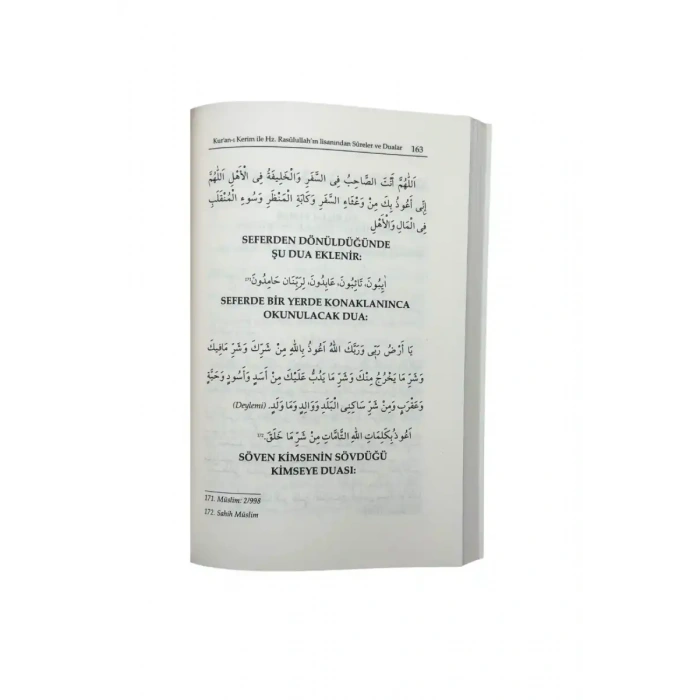 Kur'an-ı Kerim ile Hz. Rasûlullah'ın lisanından Sûreler ve Dualar 163
اَللّٰهُمَّ اَنْتَ الصَّاحِبُ فِى السَّفَرِ وَالْخَلِيفَةُ فِى الْاَهْلِ اَللّٰهُمَّ
اِنِّى اَعُوذُ بِكَ مِنْ وَعْثَاءِ السَّفَرِ وَكَابَةِ الْمَنْظَرِ وَسُوءِ الْمُنْقَلَبِ
فِى الْمَالِ وَالْاَهْلِ
SEFERDEN DÖNÜLDÜĞÜNDE
ŞU DUA EKLENİR:
اٰيِبُونَ، تَائِبُونَ، عَابِدُونَ، لِرَبِّنَان حَامِدُونَ ¹⁷¹
SEFERDE BİR YERDE KONAKLANINCA
OKUNULACAK DUA:
يَا اَرْضُ رَبِّى وَرَبُّكَ اللهُ اَعُوذُ بِاللهِ مِنْ شَرِّكَ وَشَرِّ مَافِيكَ
وَشَرِّ مَا يَخْرُجُ مِنْكَ وَشَرِّ مَا يَدُبُّ عَلَيْكَ مِنْ اَسَدٍ وَاَسْوَدٍ وَحَيَّةٍ
وَعَقْرَبٍ وَمِنْ شَرِّ سَاكِنِى الْبَلَدِ وَوَالِدٍ وَمَا وَلَدٍ. (Deylemi)
اَعُوذُ بِكَلِمَاتِ اللهِ التَّامَّاتِ مِنْ شَرِّ مَا خَلَقَ. ¹⁷²
SÖVEN KİMSENİN SÖVDÜĞÜ
KİMSEYE DUASI:
171. Müslim: 2/998
172. Sahih Müslim